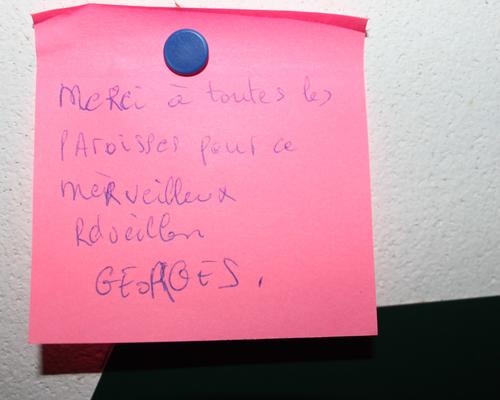 Merci à toutes les
paroisses pour ce
mèrveilleux
Réveillon
GEORGES.